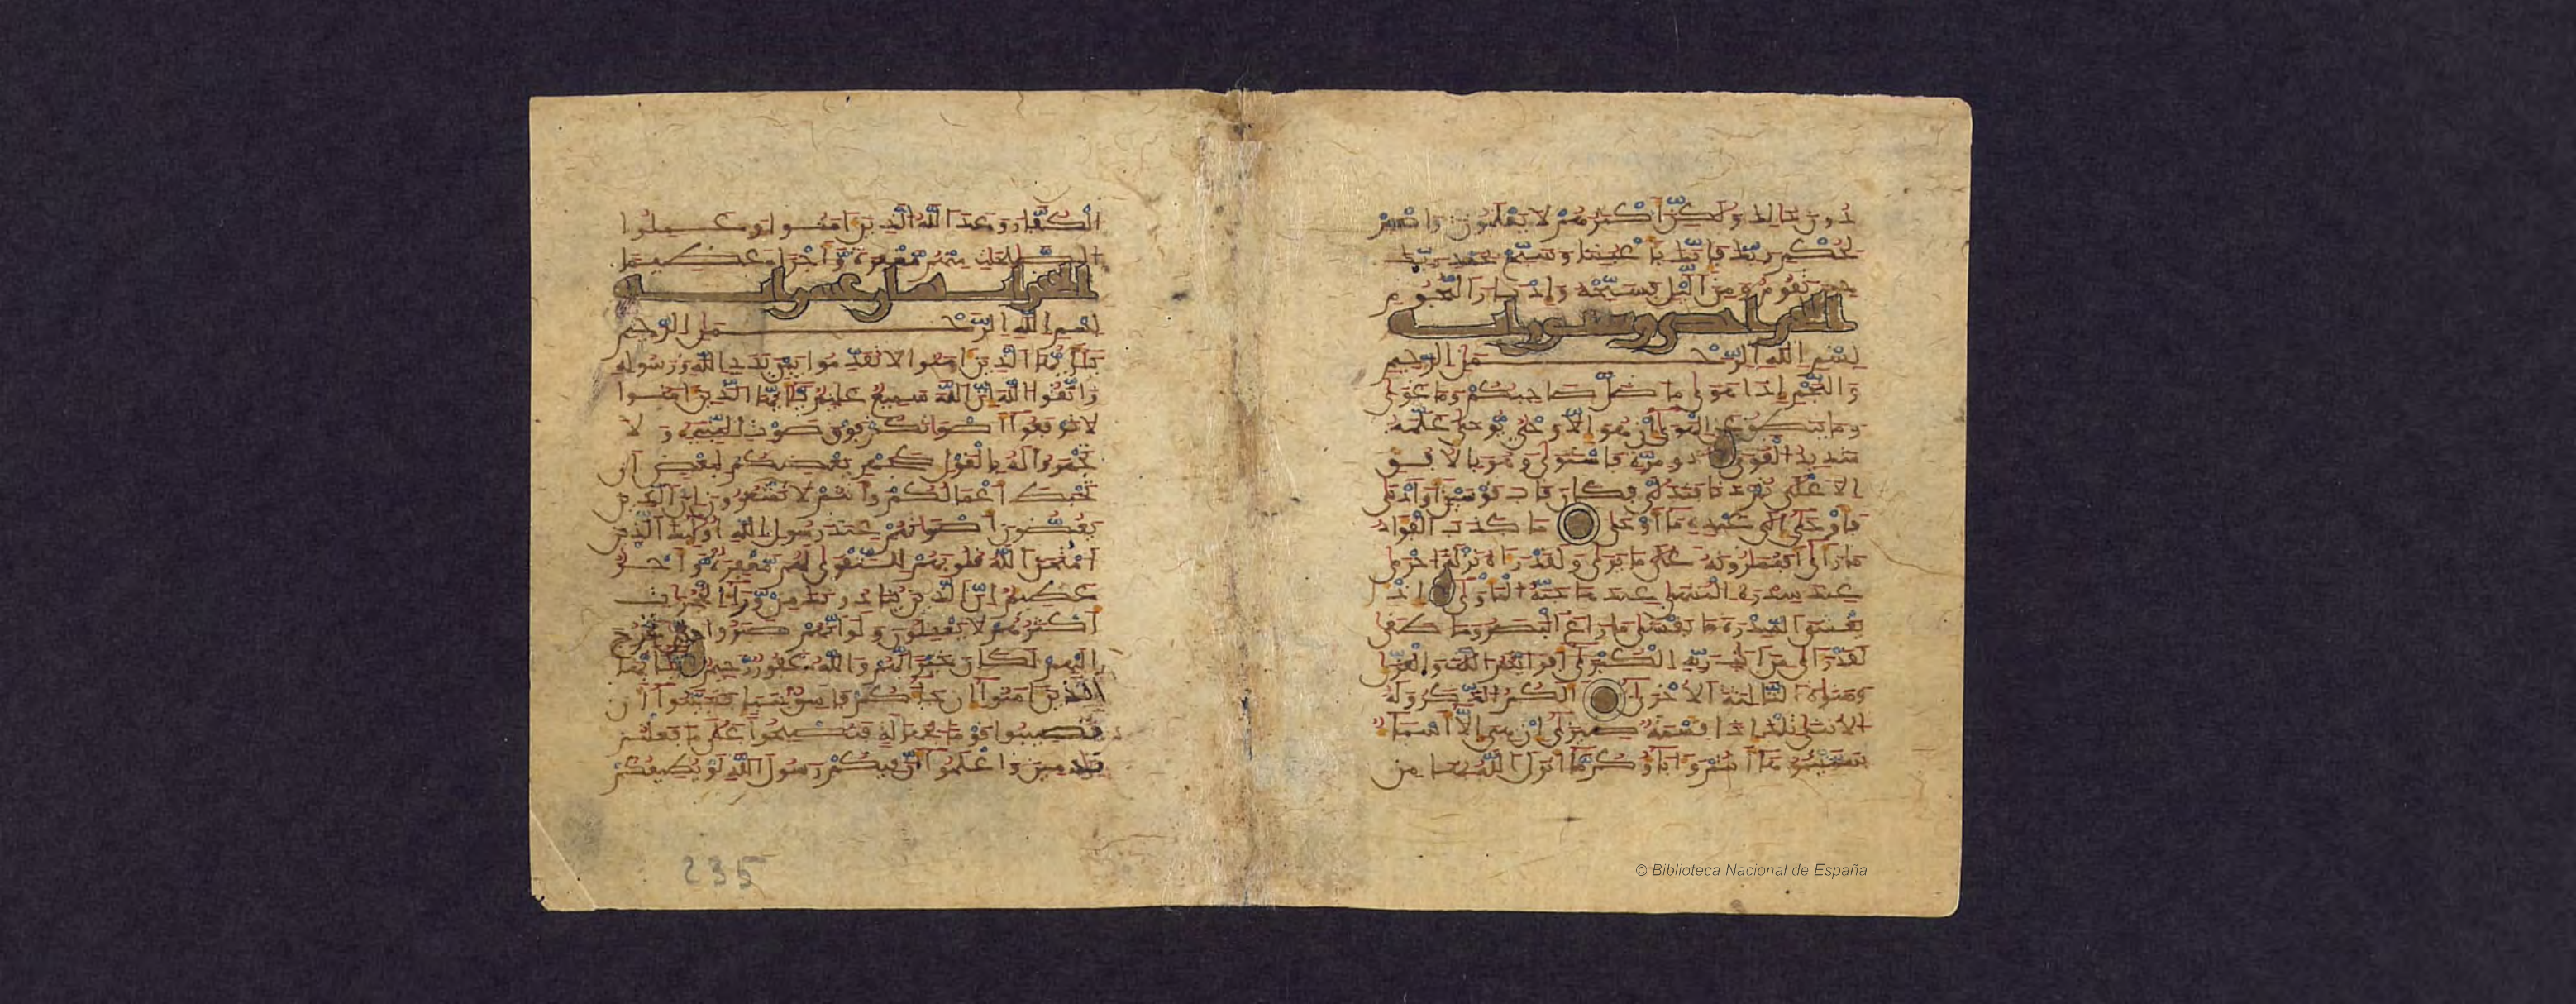 دون ذلك ولكن أكثرهم لا يعلمون واصبر
لحكم ربك فإنك بأعيننا وسبح بحمد ربك
حين تقوم ومن الليل فسبحه وإدبر النجوم
بسم الله الرحمن الرحيم
والنجم إذا هوى ما ضل صاحبكم وما غوى
وما ينطق عن الهوى إن هو إلا وحي يوحى علمه
شديد القوى ذو مرة فاستوى وهو بالأفق
الأعلى ثم دنا فتدلى فكان قاب قوسين أو أدنى
فأوحى إلى عبده ما أوحى ما كذب الفؤاد
ما رأى أفتمارونه على ما يرى ولقد رآه نزلة أخرى
عند سدرة المنتهى عندها جنة المأوى إذ
يغشى السدرة ما يغشى ما زاغ البصر وما طغى
لقد رأى من آيت ربه الكبرى أفرأيتم اللت والعزى
ومنوة الثالثة الأخرى ألكم الذكر وله
الأنثى تلك إذا قسمة ضيزى إن هي إلا أسماء
سميتموها أنتم وآباؤكم ما أنزل الله بها من
الكفار وعد الله الذين آمنوا وعملوا
الصلحت منهم مغفرة وأجرا عظيما
بسم الله الرحمن الرحيم
يأيها الذين آمنوا لا تقدموا بين يدي الله ورسوله
واتقوا الله إن الله سميع عليم يأيها الذين آمنوا
لا ترفعوا أصواتكم فوق صوت النبيء ولا
تجهروا له بالقول كجهر بعضكم لبعض أن
تحبط أعمالكم وأنتم لا تشعرون إن الذين
يغضون أصواتهم عند رسول الله أولئك الذين
امتحن الله قلوبهم للتقوى لهم مغفرة وأجر
عظيم إن الذين ينادونك من وراء الحجرات
أكثرهم لا يعقلون ولو أنهم صبروا حتى تخرج
إليهم لكان خيرا لهم والله غفور رحيم يأيها
الذين آمنوا إن جاءكم فاسق بنبإ فتبينوا أن
تصيبوا قوما بجهلة فتصبحوا على ما فعلتم
ندمين واعلموا أن فيكم رسول الله لو يطيعكم
235
© Biblioteca Nacional de España